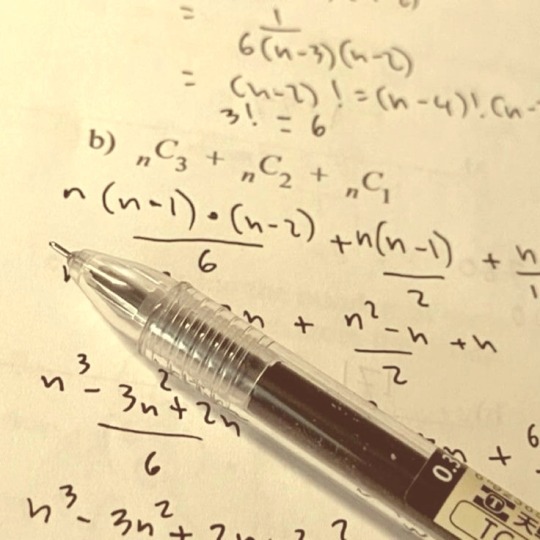 =
1
6(n-3)(n-2)
= (n-2)! = (n-4)!.(n-
3! = 6
b) nC3 + nC2 + nC1
n(n-1)·(n-2) + n(n-1) + n
6 2 1
n + n² - n + n
2
n³ - 3n² + 2n
6
+ 6
n³ - 3n² +
0.3
T 天
TC